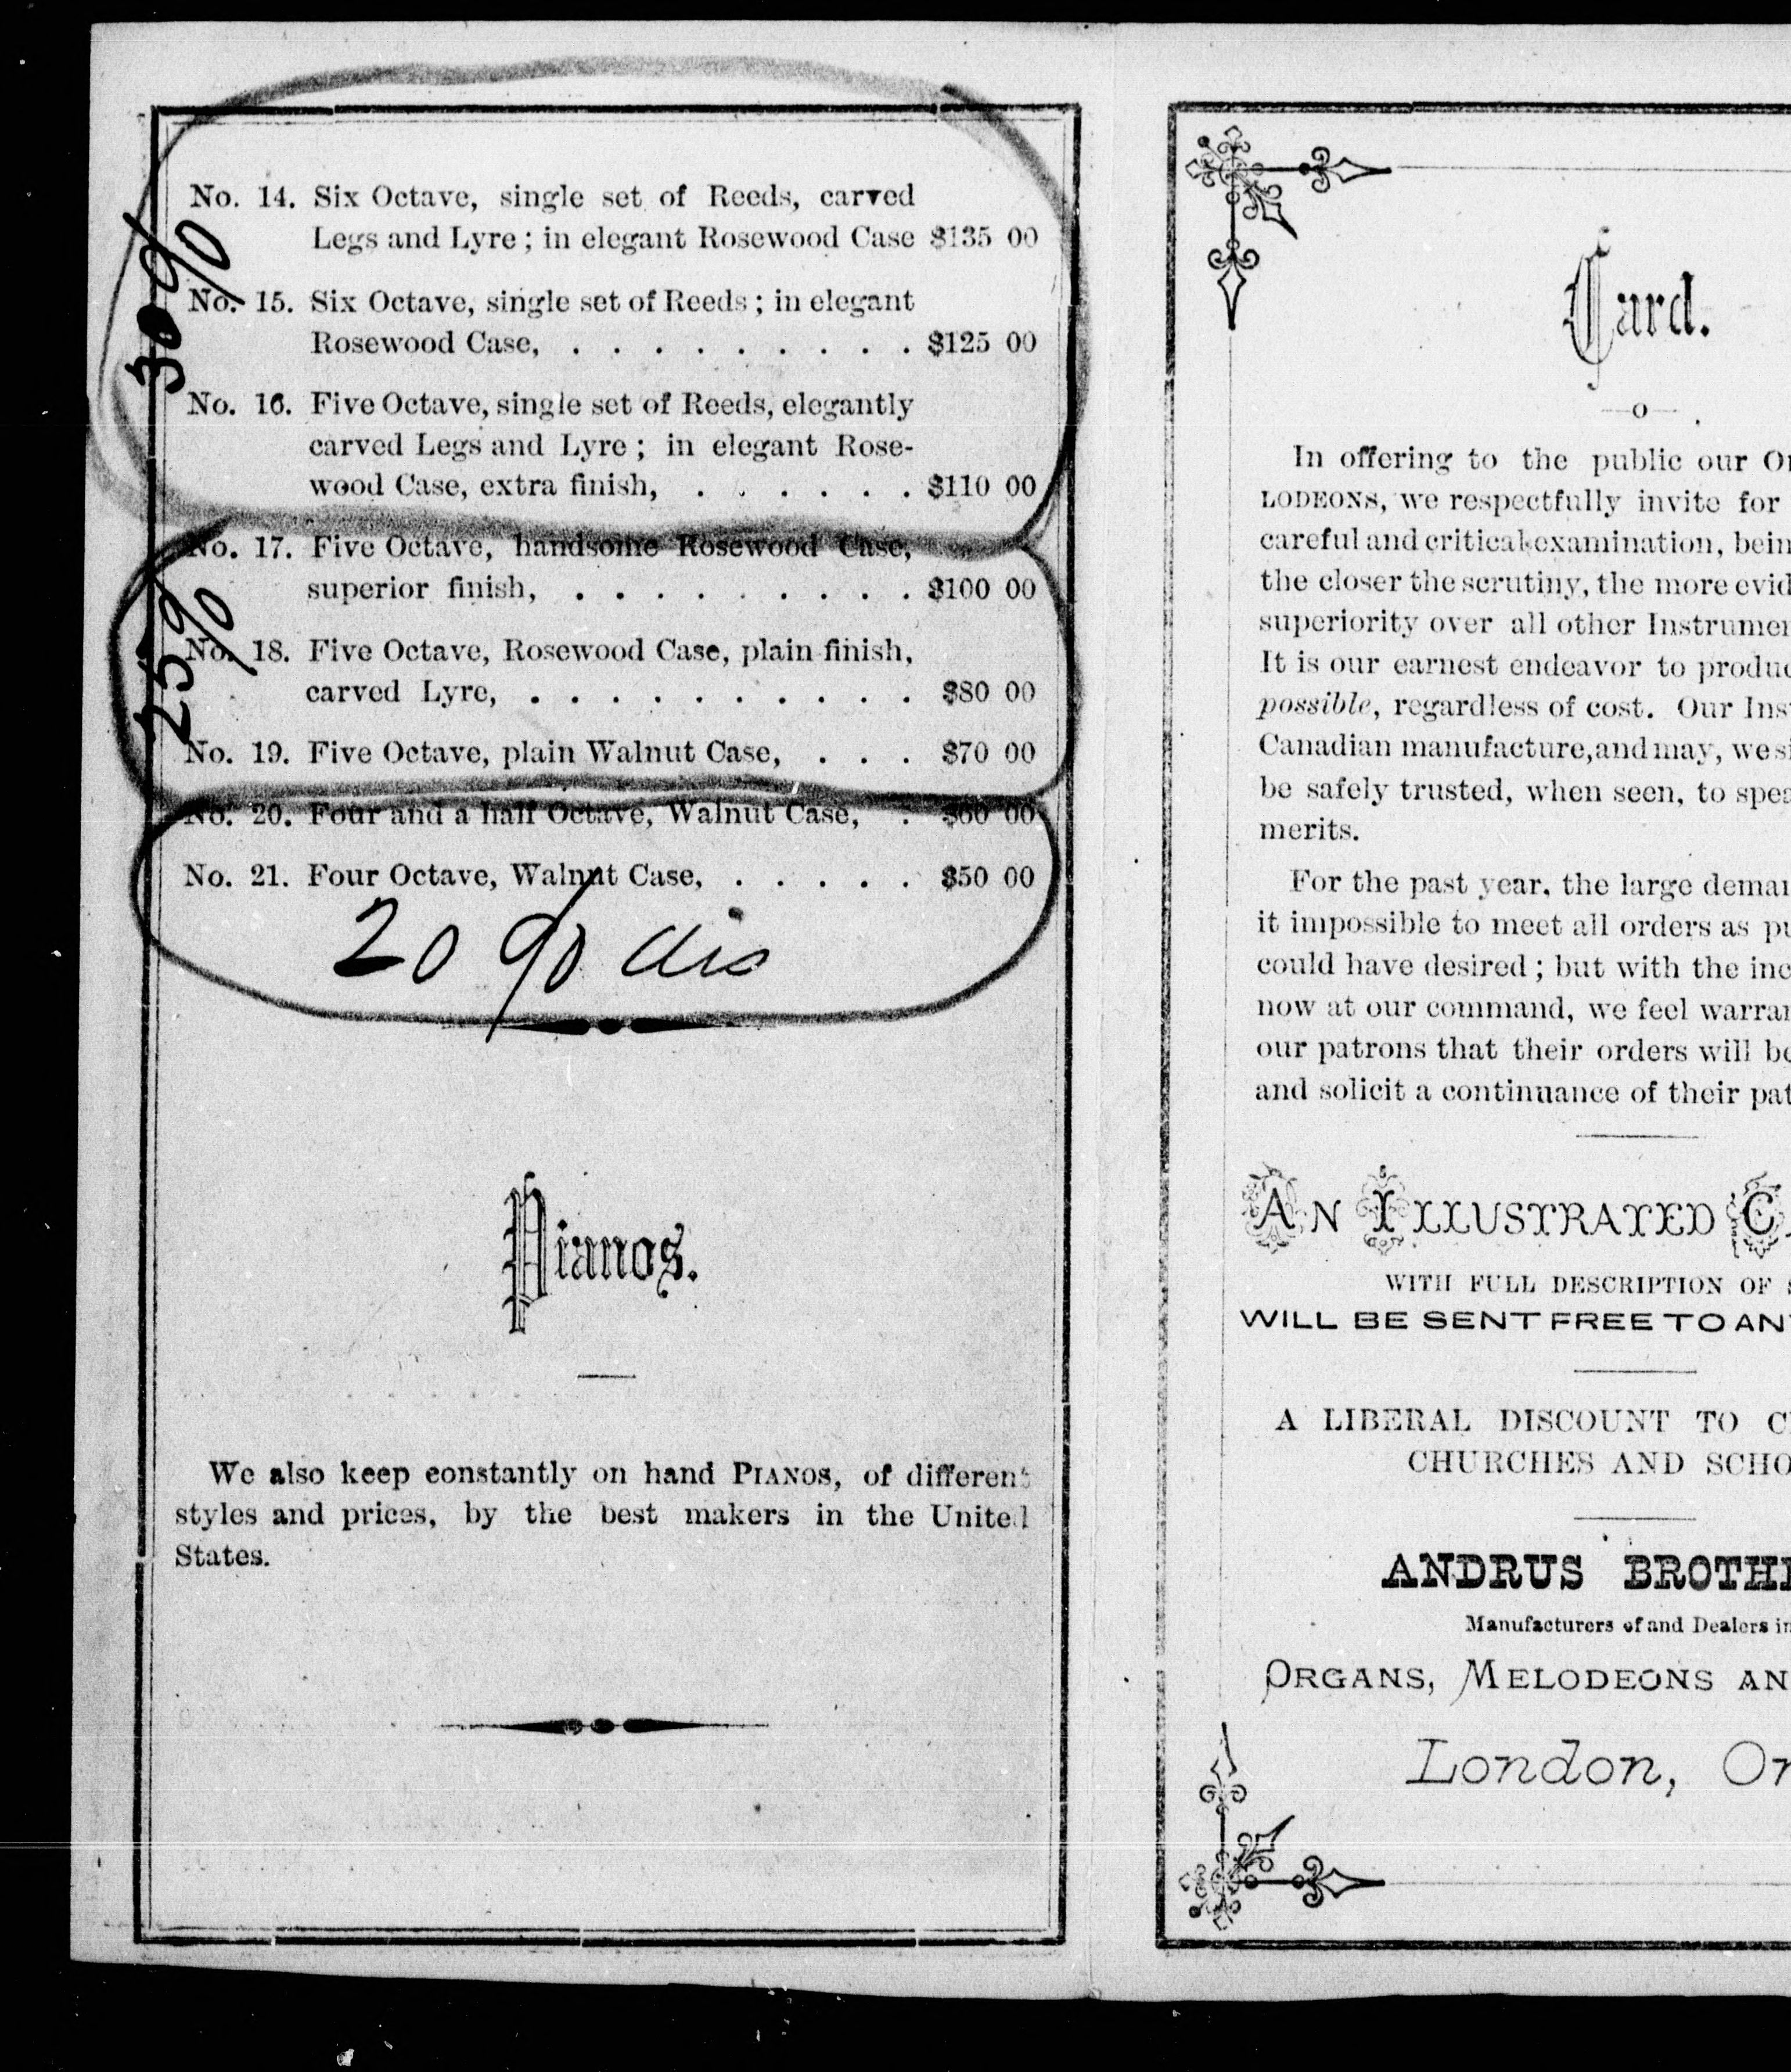 No. 14. Six Octave, single set of Reeds, carved
Legs and Lyre ; in elegant Rosewood Case $135 00
30%
No. 15. Six Octave, single set of Reeds ; in elegant
Rosewood Case, . . . . . . . . . $125 00
No. 16. Five Octave, single set of Reeds, elegantly
carved Legs and Lyre ; in elegant Rose-
wood Case, extra finish, . . . . . . $110 00
No. 17. Five Octave, handsome Rosewood Case,
superior finish, . . . . . . . . . $100 00
25%
No. 18. Five Octave, Rosewood Case, plain finish,
carved Lyre, . . . . . . . . . . $80 00
No. 19. Five Octave, plain Walnut Case, . . . $70 00
No. 20. Four and a half Octave, Walnut Case, . $60 00
No. 21. Four Octave, Walnut Case, . . . . . $50 00
20 % dis
Pianos.
We also keep constantly on hand PIANOS, of different
styles and prices, by the best makers in the United
States.
Card.
—o—
In offering to the public our
LODEONS, we respectfully invite for
careful and critical examination,
the closer the scrutiny, the more
superiority over all other
It is our earnest endeavor to
possible, regardless of cost. Our
Canadian manufacture, and may, we
be safely trusted, when seen, to
merits.
For the past year, the large
it impossible to meet all orders as
could have desired ; but with the
now at our command, we feel
our patrons that their orders will
and solicit a continuance of their
AN ILLUSTRATED C
WITH FULL DESCRIPTION OF
WILL BE SENT FREE TO AN
A LIBERAL DISCOUNT TO
CHURCHES AND SCHO
ANDRUS BROTH
Manufacturers of and Dealers in
ORGANS, MELODEONS AN
London, On